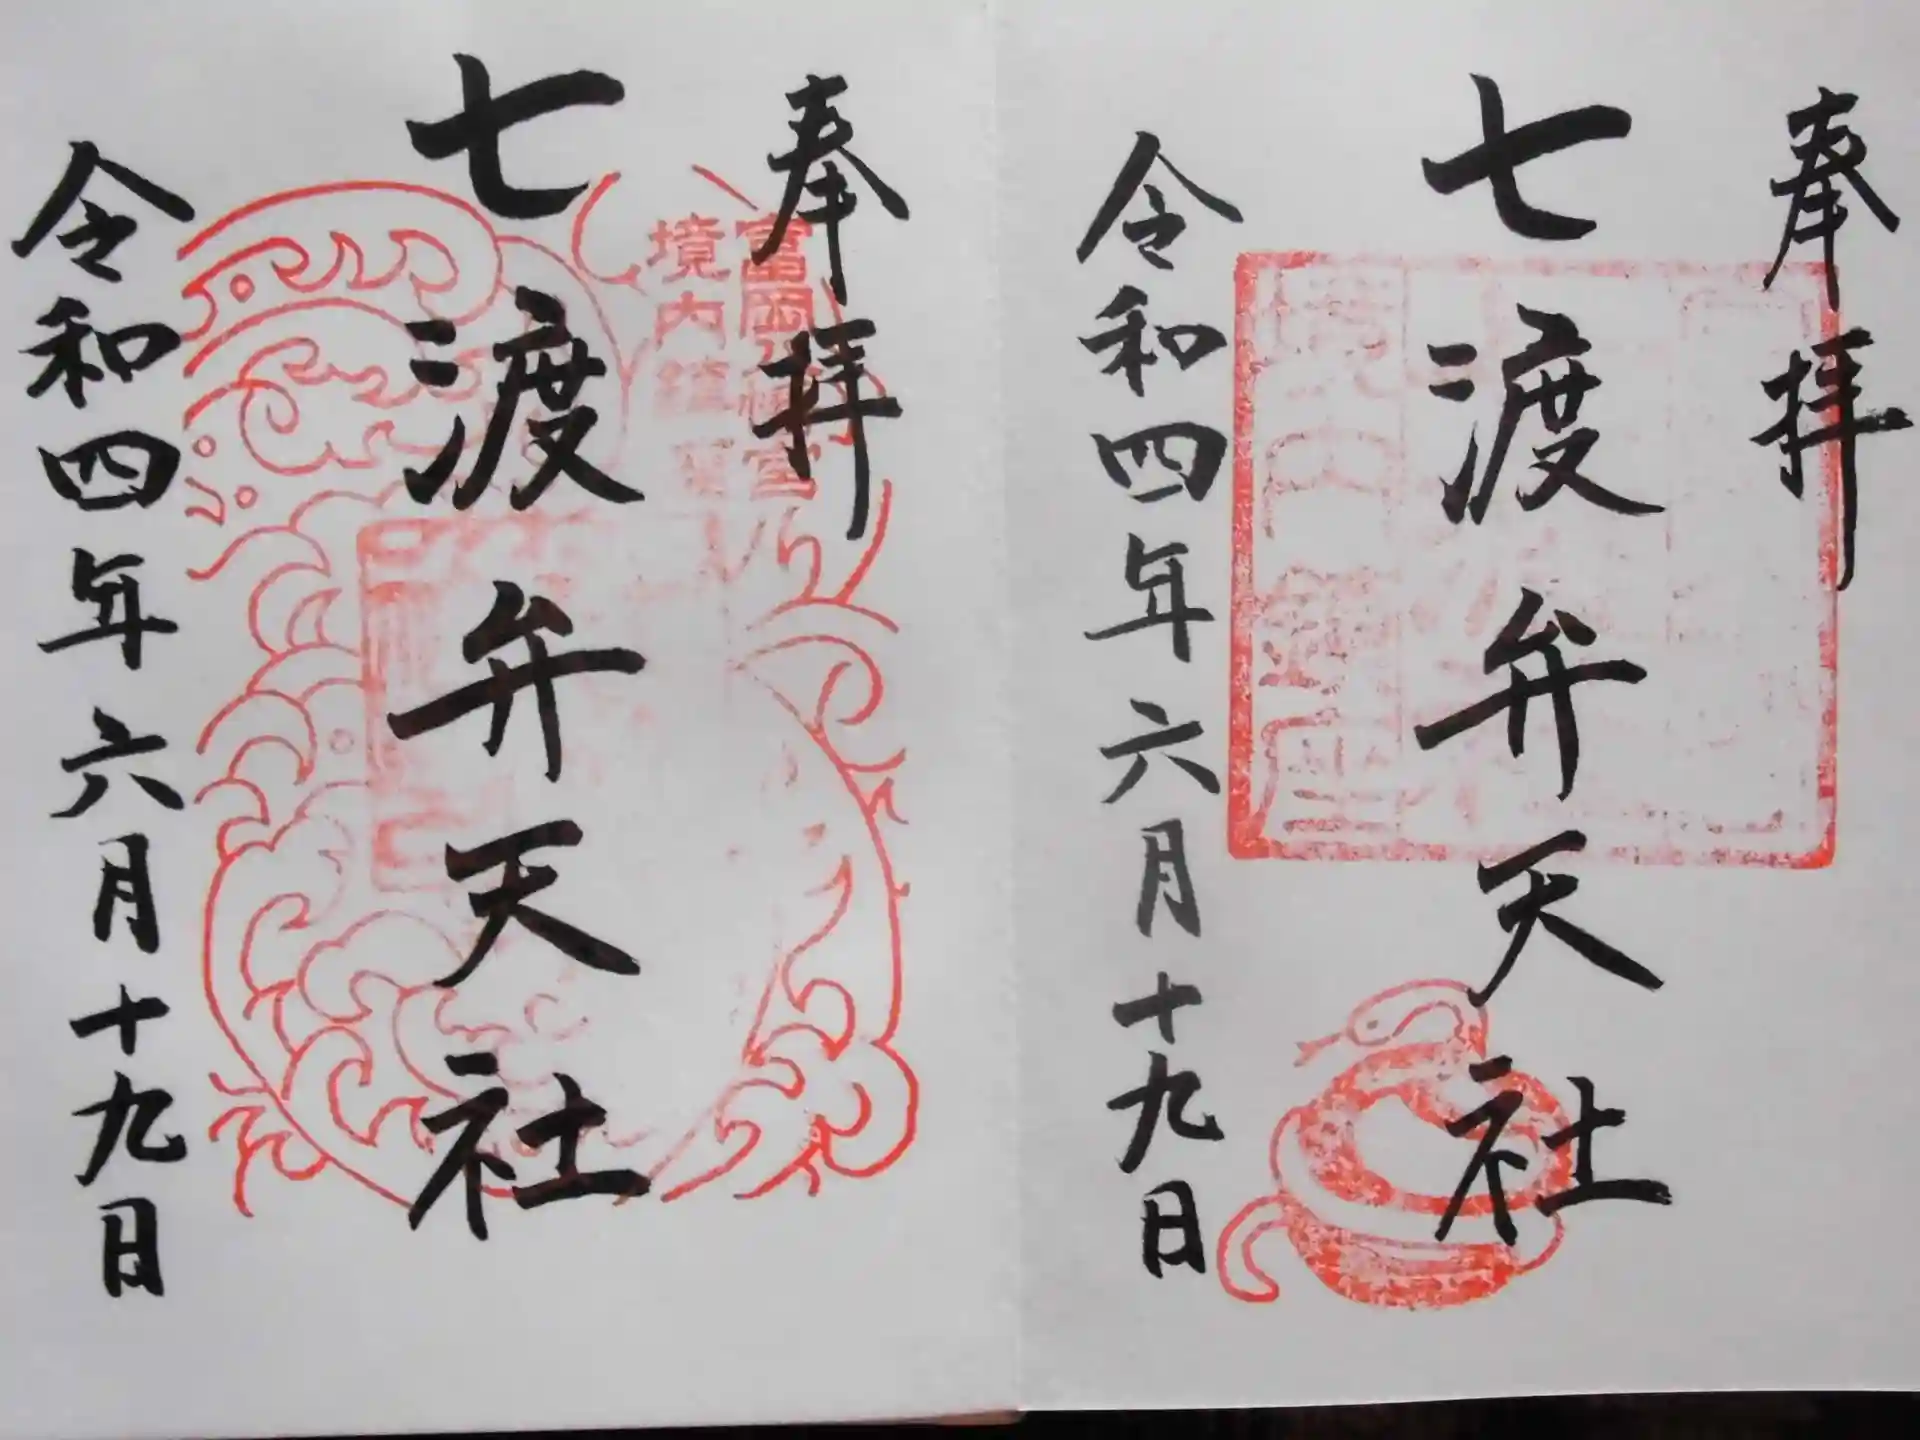 奉拝
七渡弁天社
令和四年六月十九日
境内鎮座
奉拝
七渡弁天社
令和四年六月十九日
富岡八幡宮
境内鎮